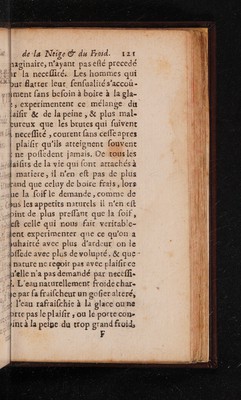 de la Neige & du Froid. 121
maginaire, n'ayant pas esté precedé
ar la necessité. Les hommes qui
our flatter leur sensualité s'accou-
ument sans besoin à boire à la gla-
e, experimentent ce mélange du
laisir & de la peine, & plus mal-
eureux que les brutes qui suivent
necessité, courent sans cesse apres
plaisir qu'ils atteignent souvent
ne possedent jamais. De tous les
laisirs de la vie qui sont attachés à
matiere, il n'en est pas de plus
rand que celuy de boire frais, lors
ue la soif le demande, comme de
ous les appetits naturels il n'en est
oint de plus pressant que la soif,
est celle qui nous fait veritable-
ent experimenter que ce qu'on a
ouhaitté avec plus d'ardeur on le
ossede avec plus de volupté, & que
nature ne reçoit pas avec plaisir ce
u'elle n'a pas demandé par necessi-
é. L'eau naturellement froide char-
e par sa fraischeur un gosier alteré,
l'eau rafraischie à la glace ou ne
orte pas le plaisir, ou le porte con-
oint à la peine du trop grand froid,
F